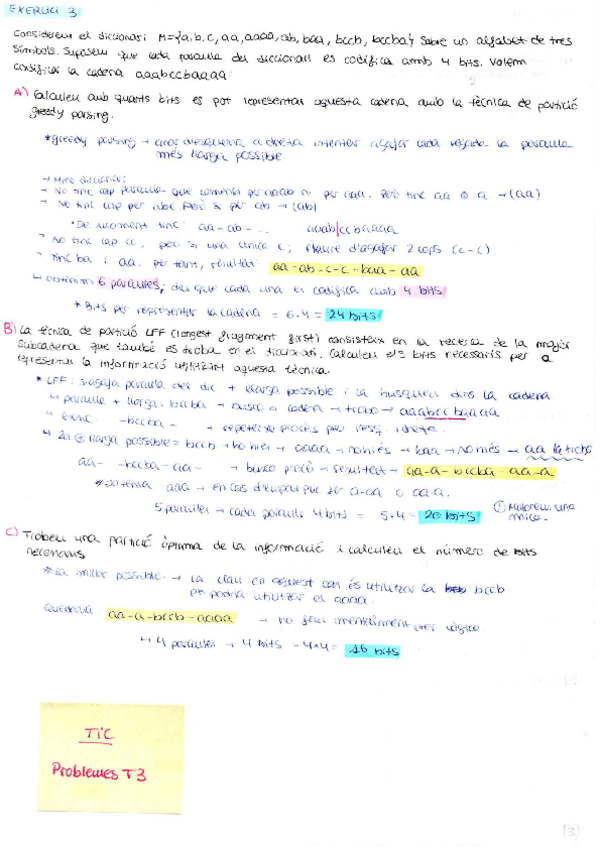 EXERCICI 3
Considerem el diccionari M={a,b,c,aa,aaaa,ab,baa,bccb,bccba} sobre un alfabet de tres
símbols. Suposem que cada paraula del diccionari es codifica amb 4 bits. Volem
codificar la cadena aaabccbaaaa:
A) Calculeu amb quants bits es pot representar aquesta cadena amb la tècnica de partició
greedy parsing.
*greedy parsing → anar d'esquerra a dreta intentar agafar cada vegada la paraula
més llarga possible.
→ Miro diccionari
→ No tinc cap paraula que comenci per aaab ni per aaa. Però tinc aa o a → (aa)
→ No tinc cap per abc però si per ab → (ab)
*De moment tinc: aa-ab-... aaab|ccbaaaa
→ No tinc cap cc, però si una única c; hauré d'agafar 2 cops (c-c)
→ Tinc baa i aa. per tant, resultat: aa-ab-c-c-baa-aa
↳ obtenim 6 paraules, del que cada una es codifica amb 4 bits
*Bits per representar la cadena = 6·4 = 24 bits
B) La tècnica de partició LFF (longest fragment first) consisteix en la recerca de la major
subcadena que també es troba en el diccionari. Calculeu els bits necessaris per a
representar la informació utilitzant aquesta tècnica.
*LFF: s'agafa paraula del dic + llarga possible i la busquem dins la cadena.
↳ paraula + llarga: bccba → busco a cadena → trobo → aaabccbaaaa
↳ -bccba- → repeteixo procés per
↳ 2a llarga possible = bccb → no hi és → aaaa → no hi és → baa → no més → aa la trobo
aa- -bccba-aa- → busco → resultat → aa-a-bccba-aa-a
5 paraules → cada paraula 4 bits = 5·4 = 20 bits
Millorem una
mica.
C) Trobeu una partició òptima de la informació i calculeu el número de bits
necessaris
*La millor possible → la clau en aquest cas és utilitzar la bccb
podria utilitzar el aaaa.
Quedaria aa-a-bccb-aaaa → ho fem mentalment per lògica
↳ 4 paraules → 4 bits → 4·4 = 16 bits
TIC
Problemes T3
3